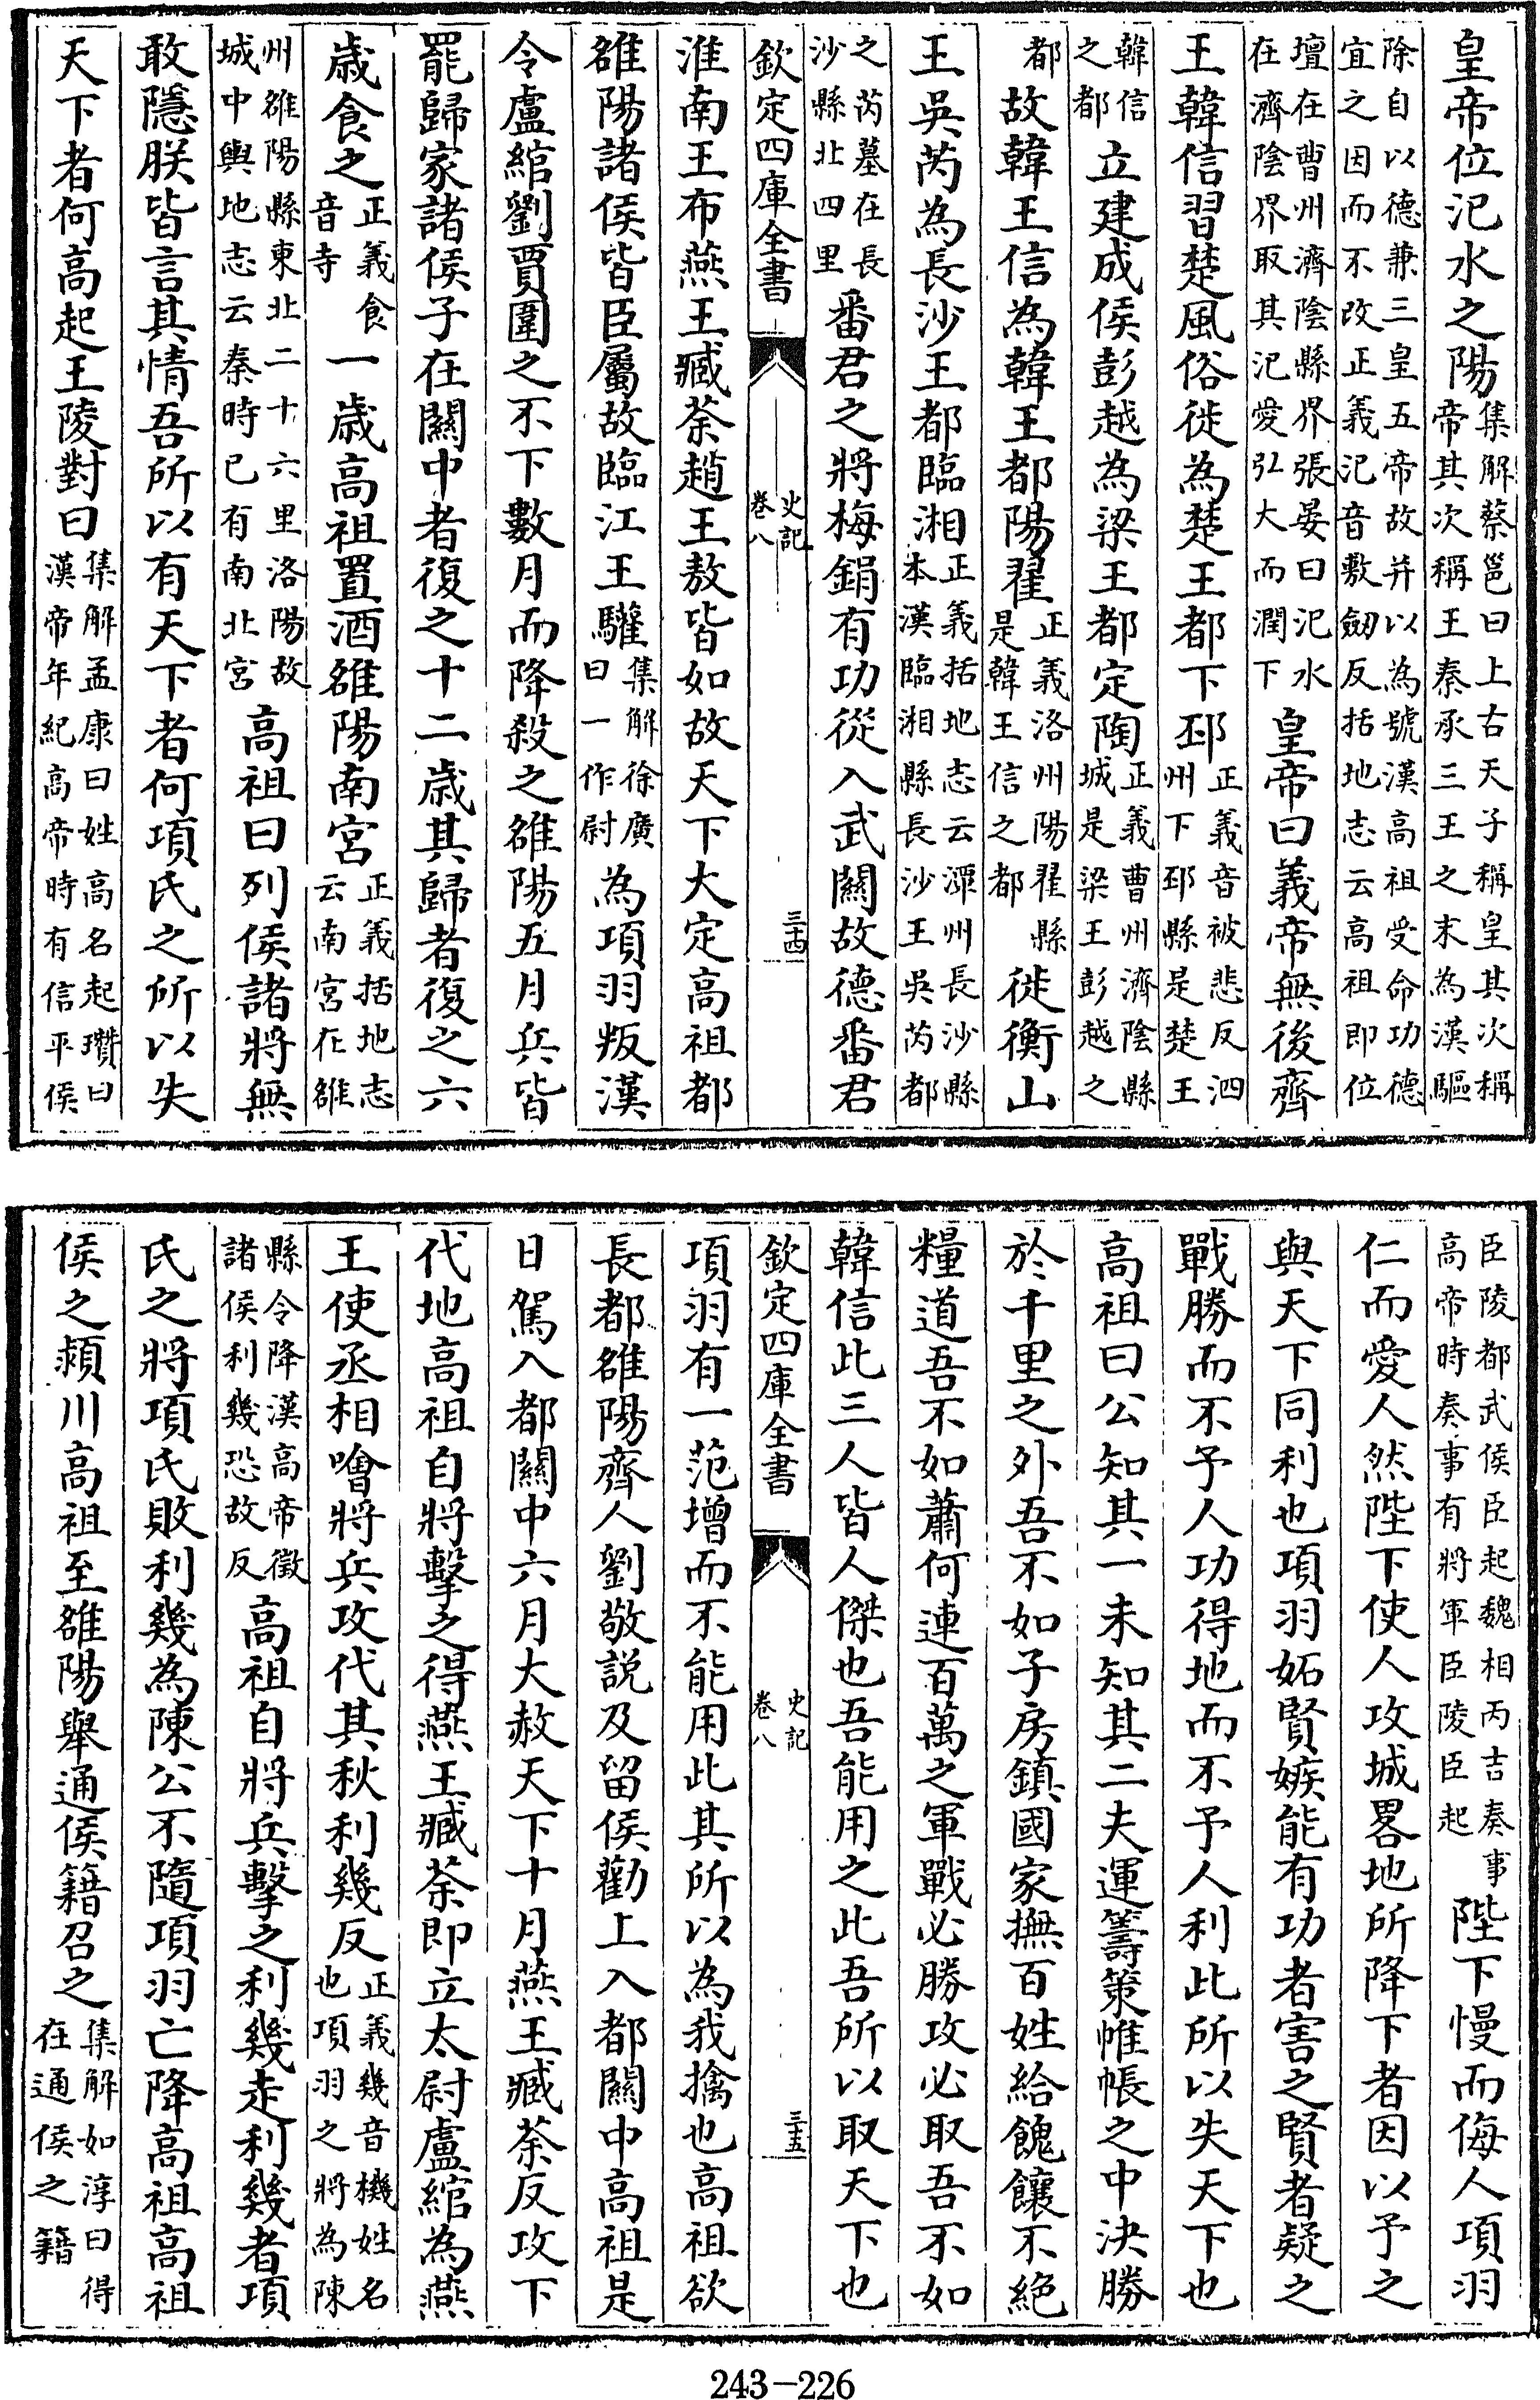 皇帝位氾水之陽集解蔡邕曰上古天子稱皇其次稱帝其次稱王秦承三王之末為漢驅
除自以德兼三皇五帝故并以為號漢高祖受命功德宜之因而不改正義氾音敷劒反括地志云高祖即位
壇在曹州濟陰縣界張晏曰氾水在濟陰界取其氾愛弘大而潤下皇帝曰義帝無後齊
王韓信習楚風俗徙為楚王都下邳正義音被悲反泗州下邳縣是楚王
韓信之都立建成侯彭越為梁王都定陶正義曹州濟陰縣城是梁王彭越之
都故韓王信為韓王都陽翟正義洛州陽翟縣是韓王信之都徙衡山
王吳芮為長沙王都臨湘正義括地志云潭州長沙縣本漢臨湘縣長沙王吳芮都
之芮墓在長沙縣北四里番君之將梅鋗有功從入武關故德番君
欽定四庫全書 史記卷八 三十四
淮南王布燕王臧荼趙王敖皆如故天下大定高祖都
雒陽諸侯皆臣屬故臨江王驩集解徐廣曰一作尉為項羽叛漢
令盧綰劉賈圍之不下數月而降殺之雒陽五月兵皆
罷歸家諸侯子在關中者復之十二歲其歸者復之六
歲食之正義食音寺一歲高祖置酒雒陽南宮正義括地志云南宮在雒
州雒陽縣東北二十六里洛陽故城中輿地志云秦時已有南北宮高祖曰列侯諸將無
敢隱朕皆言其情吾所以有天下者何項氏之所以失
天下者何高起王陵對曰集解孟康曰姓高名起瓚曰漢帝年紀高帝時有信平侯
臣陵都武侯臣起魏相丙吉奏事高帝時奏事有將軍臣陵臣起陛下慢而侮人項羽
仁而愛人然陛下使人攻城畧地所降下者因以予之
與天下同利也項羽妬賢嫉能有功者害之賢者疑之
戰勝而不予人功得地而不予人利此所以失天下也
高祖曰公知其一未知其二夫運籌策帷帳之中決勝
於千里之外吾不如子房鎮國家撫百姓給餽饟不絕
糧道吾不如蕭何連百萬之軍戰必勝攻必取吾不如
韓信此三人皆人傑也吾能用之此吾所以取天下也
欽定四庫全書 史記卷八 三十五
項羽有一范增而不能用此其所以為我擒也高祖欲
長都雒陽齊人劉敬説及留侯勸上入都關中高祖是
日駕入都關中六月大赦天下十月燕王臧荼反攻下
代地高祖自將擊之得燕王臧荼即立太尉盧綰為燕
王使丞相噲將兵攻代其秋利幾反正義幾音機姓名也項羽之將為陳
縣令降漢高帝徵諸侯利幾恐故反高祖自將兵擊之利幾走利幾者項
氏之將項氏敗利幾為陳公不隨項羽亡降高祖高祖
侯之潁川高祖至雒陽舉通侯籍召之集解如淳曰得在通侯之籍
243-226